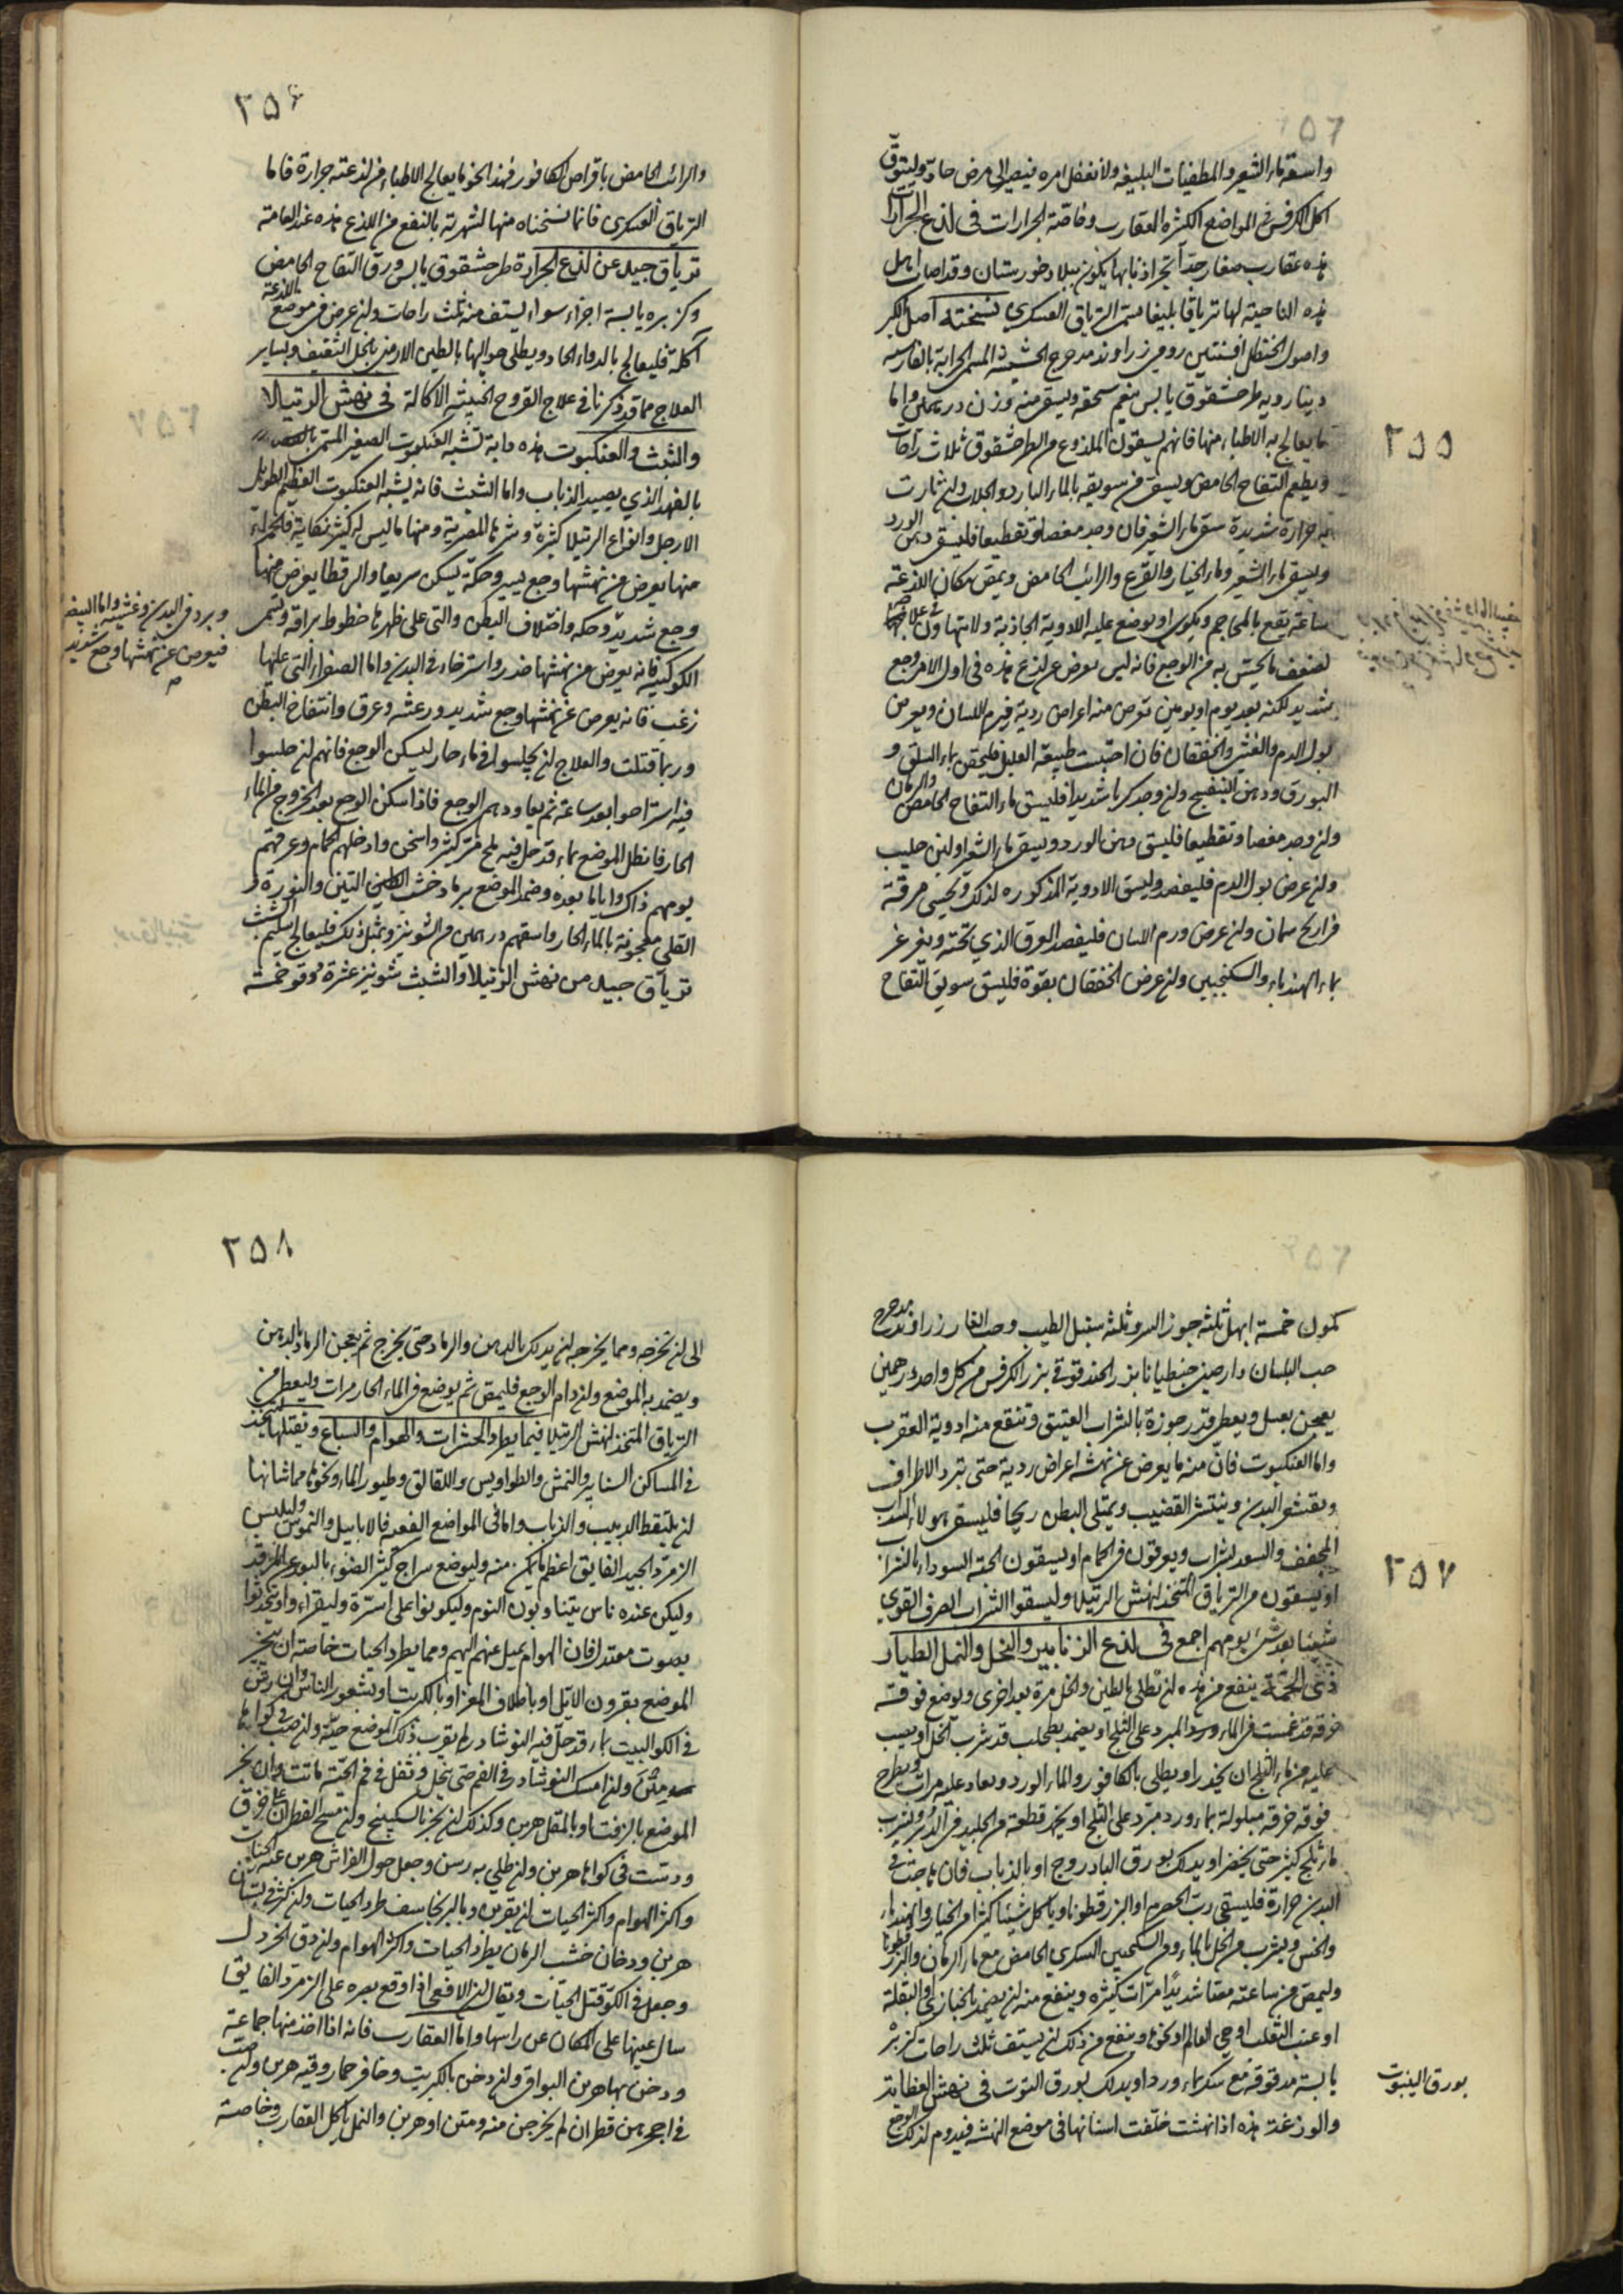 ٢٥٥
واسقه ماء الشعير والمطفيات البليغة ولا تغفل امره فيصير الى مرض حاد وليتوق
اكل الكرفس في المواضع الكثيرة العقارب وخاصة الجرارات في لذع الجرارات
هذه عقارب صغار جدا تجر اذنابها يكون ببلاد خوزستان وقد اصاب اهل
هذه الناحية لها ترياقا بليغا يسمى الترياق العسكري نسخته اصل الكبر
واصول الحنظل افسنتين رومي زراوند مدحرج الحشيشة المسمى الحرابة بالفارسية
دينارويه طرخشقوق يابس ينعم سحقه ويسقى منه وزن درهمين واما
ما يعالج به الاطباء منها فانهم يسقون الملذوع من الطرخشقوق ثلاث راحات
ويطعم التفاح الحامض ويسقى من سويقه بالماء البارد والجلاب وان ثارت
به حرارة شديدة سقي ماء الشعير فان وجد مغصا وتقطيعا فليسق دهن الورد
ويسقى ماء الشعير وماء الخيار والقرع والرائب الحامض ويمص مكان اللذعة
ساعة تقع بالمحاجم ويكوى او يوضع عليه الادوية الجاذبة ولا تتهاون في علاجها
لضعف ما يحس به من الوجع فانه ليس يعرض عن لذع هذه في اول الامر وجع
شديد لكنه بعد يوم او يومين تعرض منه اعراض ردية فيرم اللسان ويعرض
بول الدم والغشي والخفقان فان احتبست طبيعة العليل فليحقن بماء السلق و
البورق ودهن البنفسج وان وجد كربا شديدا فليسق ماء التفاح الحامض والرمان
وان وجد مغصا وتقطيعا فليسق دهن الورد ويسقى ماء الشعير او لبن حليب
وان عرض بول الدم فليفصد وليسق الادوية المذكورة لذلك ويحسى مرقة
فراريج سمان وان عرض ورم اللسان فليفصد العرق الذي تحته ويغرغر
بماء الهندباء والسكنجبين وان عرض الخفقان بقوة فليسق سويق التفاح
٢٥٦
والرائب الحامض باقراص الكافور فهذا نحو ما يعالج الاطباء من لذعته جرارة فاما
الترياق العسكري فانما نسخناه منها لشهرته بالنفع من اللذع هذه عند العامة
ترياق جيد عن لذع الجرارة طرخشقوق يابس ورق التفاح الحامض
وكزبره يابسة اجزاء سواء يستف منه ثلث راحات وان عرض في موضع اللذعة
آكلة فليعالج بالدواء الحاد ويطلى حواليها بالطين الارمني بالخل الثقيف وبساير
العلاج مما قد ذكرنا في علاج القروح الخبيثة الاكالة في نهش الرتيلا
والشبث والعنكبوت هذه دابة تشبه العنكبوت الصغير المسمى
بالفهد الذي يصيد الذباب واما الشبث فانه يشبه العنكبوت العظيم الطويل
الارجل وانواع الرتيلا كثيرة وشرها المصرية ومنها ما ليس له كثير نكاية فالحمراء
منها يعرض من نهشها وجع يسير وحكة يسكن سريعا والرقطا يعرض منها
وجع شديد وحكه واختلاف البطن والتي على ظهرها خطوط براقة وتسمى
الكوكبية فانه يعرض من نهشها خدر واسترخاء في البدن واما الصفراء التي عليها
زغب فانه يعرض عن نهشها وجع شديد ورعشه وعرق وانتفاخ البطن
وربما قتلت والعلاج ان يجلسوا في ماء حار ليسكن الوجع فانهم ان جلسوا
فيه استراحوا بعد ساعة ثم يعاودهم الوجع فاذا سكن الوجع بعد الخروج من الماء
الحار فانطل الموضع بماء قد حل فيه ملح مر كثير واسخن وادخلهم الحمام وعرقهم
يومهم ذاك واياما بعده وضمد الموضع برماد خشب التين والنورة و
القلي معجونة بالماء الحار واسقهم درهمين من الشونيز وبمثل ذلك فليعالج السليم الشبث
ترياق جيد من نهش الرتيلا والشبث شونيز عشرة دوقو خمسة
وبرد في البدن وغشي واما البيض
فيعرض عن نهشها وجع شديد
٢٥٧
كمون خمسة ابهل ثلثه جوز السرو ثلثه سنبل الطيب وحب الغار زراوند مدحرج
حب البلسان دارصيني جنطيانا بزر الحندقوقي بزر الكرفس من كل واحد درهمين
يعجن بعسل ويعطى قدر جوزة بالشراب العتيق وتنفع منه ادوية العقرب
واما العنكبوت فان منه ما يعرض عن نهشه اعراض ردية حتى تبرد الاطراف
ويقشعر البدن وينتشر القضيب ويمتلى البطن ريحا فليسق هولاء السذاب
المجفف والسعد بشراب ويعرقون في الحمام او يسقون الحبة السوداء بالشراب
او يسقون من الترياق المتخذ لنهش الرتيلا وليسقوا الشراب الصرف القوي
شيئا بعد شيء يومهم اجمع في لذع الزنابير والنحل والنمل الطيار
ذي الحمة ينفع من هذه ان تطلى بالطين والخل مرة بعد اخرى ويوضع فوقه
خرقه قد غمست في الماء ورد المبرد على الثلج او يضمد بطحلب قد شرب الخل او يصب
عليه من ماء الثلج ان يخدر او يطلى بالكافور والماء الورد ويعاد عليه مرات ويطرح
فوقه خرقة مبلولة بماء ورد مبرد على الثلج او يخدر قطعة من الجليد في الدبر ويشرب
ماء ثلج كثير حتى يخصر او يدلك بورق الباذروج او بالذباب فان هاجت في
البدن حرارة فليسقى رب الحصرم او البزرقطونا وياكل شيئا كثيرا من الخيار والهندباء
والخس ويشرب من الخل بالماء ومن السكنجبين السكري الحامض مع ماء الرمان والبزر قطونا
وليمص من ساعته مصا شديدا مرات كثيرة وينفع منه ان يضمد بالخبازي والبقلة
او عنب الثعلب او حي العالم او نحوه وينفع من ذلك ان يستف ثلث راحات كزبرة
يابسة مدقوقة مع سكر بماء ورد او يدلك بورق التوت في نهش العظاية
والوزغة هذه اذا نهشت خلفت اسنانها في موضع النهشة فيدوم لذلك الوجع
بورق الينبوت
٢٥٨
الى ان تخرجه ومما يخرجه ان يدلك بالدهن والرماد حتى يخرج ثم يعجن الرماد بالدهن
ويضمد به الموضع وان دام الوجع فليمص ثم يوضع في الماء الحار مرات وليعطى من
الترياق المتخذ لنهش الرتيلا فيما يطرد الحشرات والهوام والسباع ويقتلها ليتخذ
في المساكن السنانير والنمش والطواويس واللقالق وطيور الماء ونحوها مما شانها
ان يلتقط الدبيب والذباب واما في المواضع القفرة فالابابيل والنموس وليلبس
الزمرد الجيد الفايق اعظم ما يمكن منه وليوضع سراج كثير الضوء بالبعد عن المرقد
وليكن عنده ناس يتناوبون النوم وليكونوا على اسرة وليقراء او يتحدثوا
بصوت معتدل فان الهوام يميل عنهم اليهم ومما يطرد الحيات خاصه ان يبخر
الموضع بقرون الايل او باظلاف المعز او بالكبريت او بشعور الناس وان رش
في الكو البيت بماء قد حل فيه النوشادر لم يقرب ذلك الموضع حية وان صب في كواها
متن وان امسك النوشادر في الفم حتى ينحل وتفل في فم الحية ماتت وان بخر
الموضع بالزفت او بالمقل هربن وكذلك ان بخر بالسكبينج وان مسح القطران على خرق
ودست في كواها هربن وان طلي به رسن وجعل حول الفراش هربن عنه الحيات
واكثر الهوام واكثر الحيات ان يقربن وبالبرنجاسف طرد الحيات وان كثر في بستان
هربن ودخان خشب الرمان يطرد الحيات واكثر الهوام وان دق الخردل
وجعل في الكو قتل الحيات ويقال ان الافعى اذا وقع بصره على الزمرد الفايق
سال عينها على المكان عن راسها واما العقارب فانه اذا اخذ منها جماعة
ودخن بها هربن البواقي وان دخن بالكبريت وحافر حمار وقنه هربن وان صب
في اجحرهن قطران لم يخرجن منه ومتن او هربن والنمل ياكل العقارب وخاصة